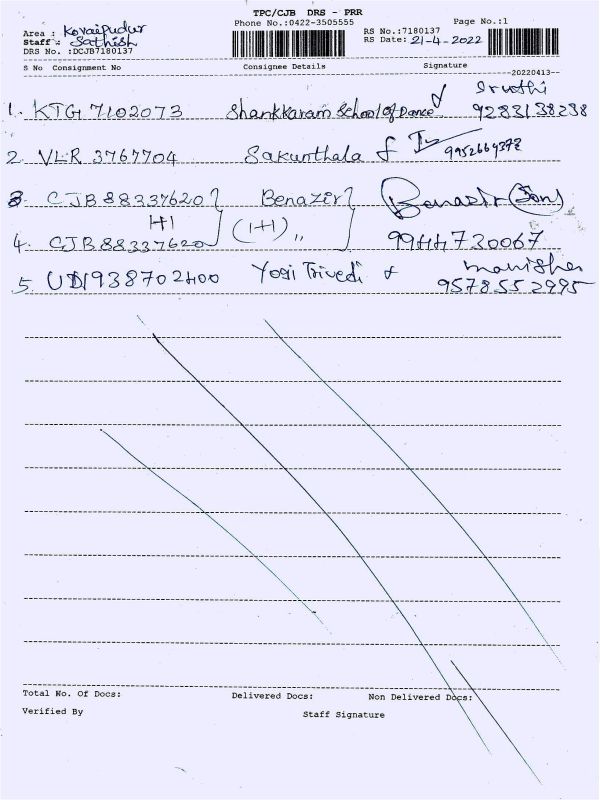 TPC/CJB DRS - PRR
Phone No.:0422-3505555
Page No.:1
Area : Kovaipudur
Staff : Sathish
DRS No. :DCJB7180137
RS No.:7180137
RS Date: 21-4-2022
S No Consignment No Consignee Details Signature
--20220413--
1. KTG 7102073 Shankkaram School Of Dance Sruthi
9283138238
2. VLR 3767704 Sakunthala
3. CJB 88337620 Benazir Benazir (Son)
1+1 (1+1) "
4. CJB 88337620 9944730067
5. UDI938702400 Yogi Trivedi Manisha
9578552995
Total No. Of Docs: Delivered Docs: Non Delivered Docs:
Verified By Staff Signature